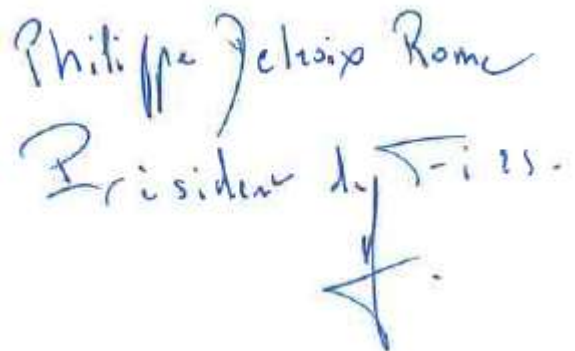 Philippe Delroix Rome
Président du